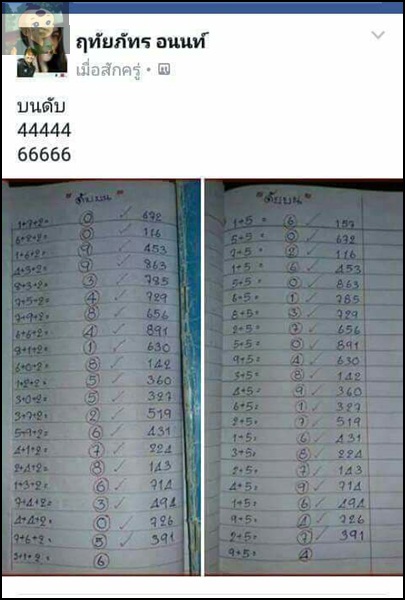 ฤทัยภัทร อนนท์
เมื่อสักครู่
บนดับ
44444
66666
"ดับบน"
1+7+2= 0 ✓ 672
6+2+2= 0 ✓ 116
1+6+2= 9 ✓ 453
4+3+2= 9 ✓ 863
8+3+2= 3 ✓ 785
7+5+2= 4 ✓ 729
7+9+2= 8 ✓ 656
6+6+2= 4 ✓ 891
8+1+2= 1 ✓ 630
6+0+2= 8 ✓ 142
1+2+2= 5 ✓ 360
3+0+2= 5 ✓ 327
3+7+2= 2 ✓ 519
5+9+2= 6 ✓ 431
4+1+2= 7 ✓ 224
2+4+2= 8 ✓ 143
1+3+2= 6 ✓ 714
7+4+2= 3 ✓ 494
4+4+2= 0 ✓ 726
7+6+2= 5 ✓ 391
3+1+2= 6
"ดับบน"
1+5= 6 ✓ 157
5+5= 0 ✓ 672
7+5= 2 ✓ 116
1+5= 6 ✓ 453
5+5= 0 ✓ 863
6+5= 1 ✓ 785
8+5= 3 ✓ 729
2+5= 7 ✓ 656
5+5= 0 ✓ 891
9+5= 4 ✓ 630
3+5= 8 ✓ 142
4+5= 9 ✓ 360
6+5= 1 ✓ 327
2+5= 7 ✓ 519
1+5= 6 ✓ 431
3+5= 8 ✓ 224
2+5= 7 ✓ 143
4+5= 9 ✓ 714
1+5= 6 ✓ 494
9+5= 4 ✓ 726
2+5= 7 ✓ 391
9+5= 4